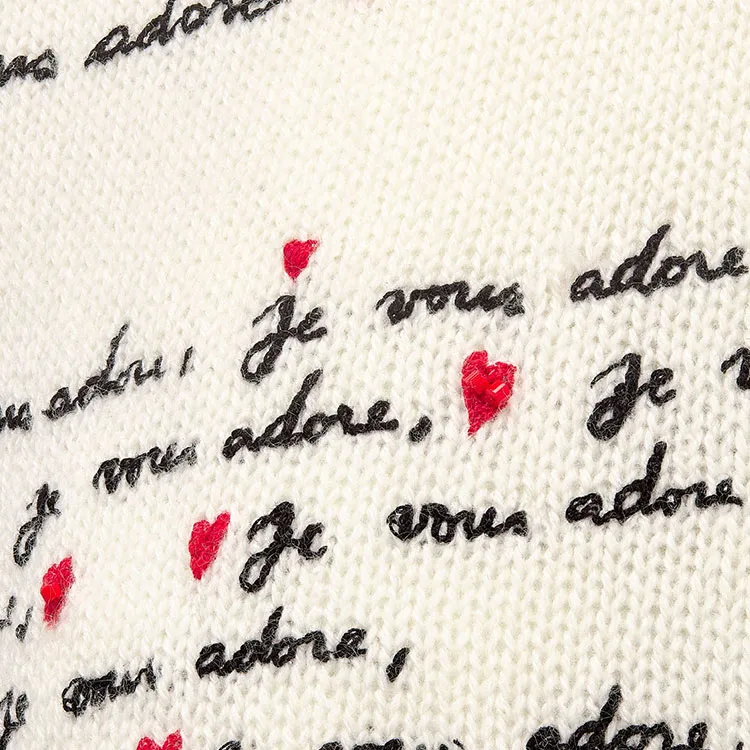 adore
Je vous adore
adore,
je vous adore, Je
Je vous adore
je vous adore,